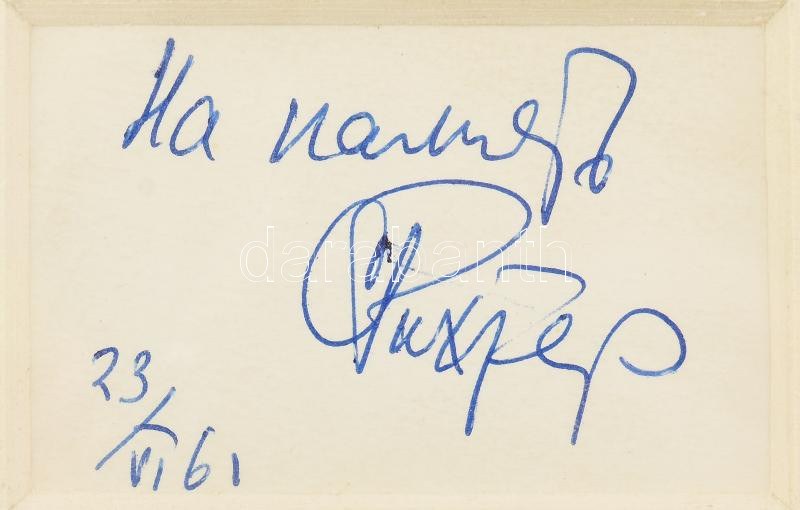 На память
С Рихтер
darabanth
23/VI 61